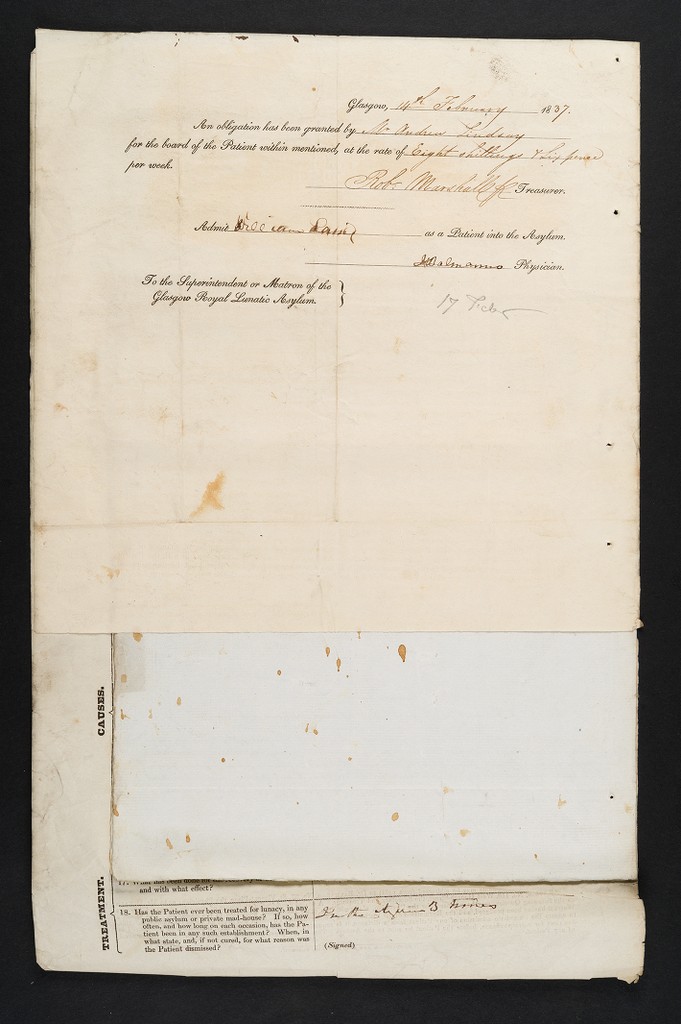 Glasgow, 14th February 1837.
An obligation has been granted by Mr Andrew Lindsay
for the board of the Patient within mentioned, at the rate of Eight shillings & Six pence
per week.
Robt Marshall Treasurer.
Admit William as a Patient into the Asylum.
Physician.
To the Superintendent or Matron of the
Glasgow Royal Lunatic Asylum.
17 Feby
CAUSES.
TREATMENT.
and with what effect?
18. Has the Patient ever been treated for lunacy, in any
public asylum or private mad-house? If so, how
often, and how long on each occasion, has the Pa-
tient been in any such establishment? When, in
what state, and, if not cured, for what reason was
the Patient dismissed?
In the Asylum 3 times
(Signed)